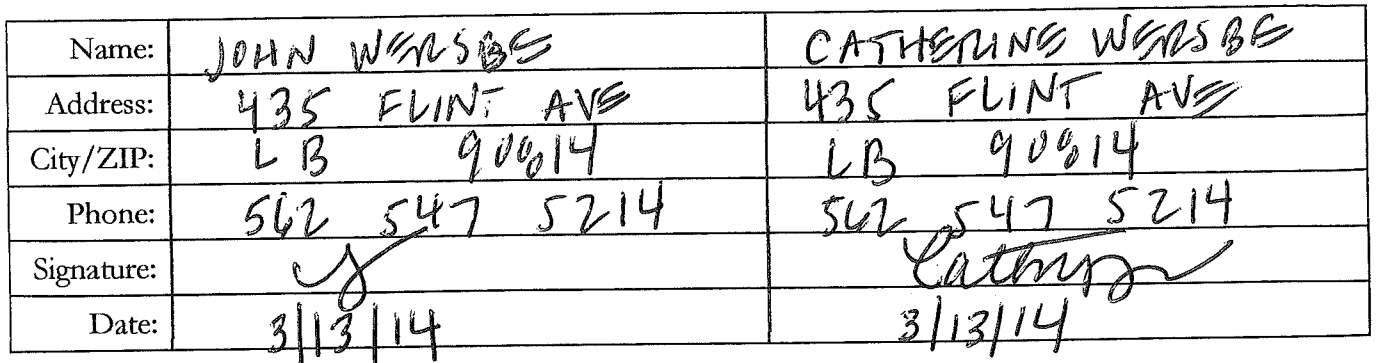 Name: JOHN WERSBE CATHERINE WERSBE
Address: 435 FLINT AVE 435 FLINT AVE
City/ZIP: LB 90814 LB 90814
Phone: 562 547 5214 562 547 5214
Signature:
Date: 3/13/14 3/13/14